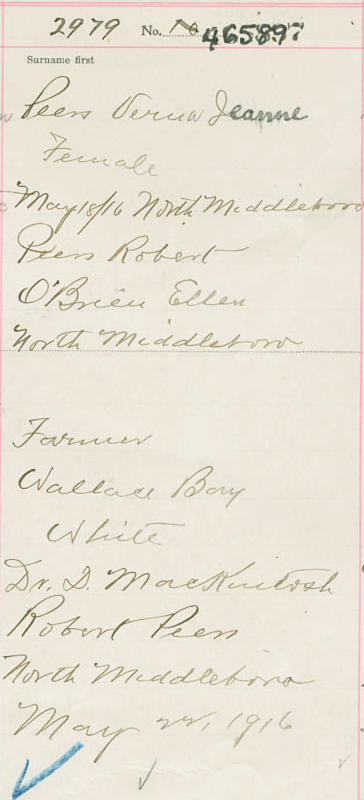 2979 No. 465897
Surname first
Peers Verna Jeanne
Female
May 18/16 North Middleboro
Peers Robert
O'Brien Ellen
North Middleboro
Farmer
Wallace Bay
White
Dr. D. MacKintosh
Robert Peers
North Middleboro
May 22, 1916